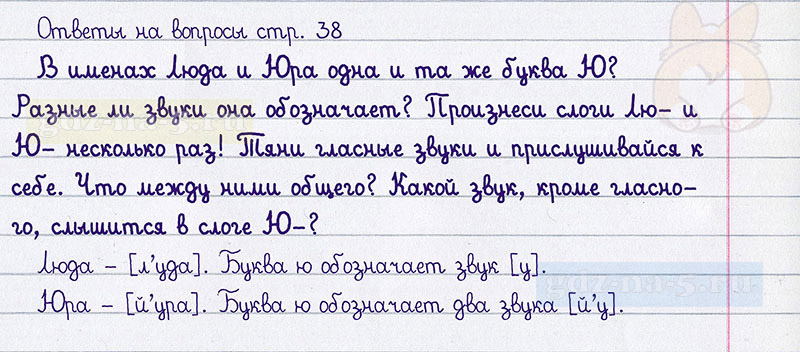 Ответы на вопросы стр. 38
В именах Люда и Юра одна и та же буква Ю?
Разные ли звуки она обозначает? Произнеси слоги Лю- и
Ю- несколько раз! Тяни гласные звуки и прислушивайся к
себе. Что между ними общего? Какой звук, кроме гласно-
го, слышится в слоге Ю-?
Люда - [л'уда]. Буква ю обозначает звук [у].
Юра - [й'ура]. Буква ю обозначает два звука [й'у].
gdz-na-5.ru
gdz-na-5.ru